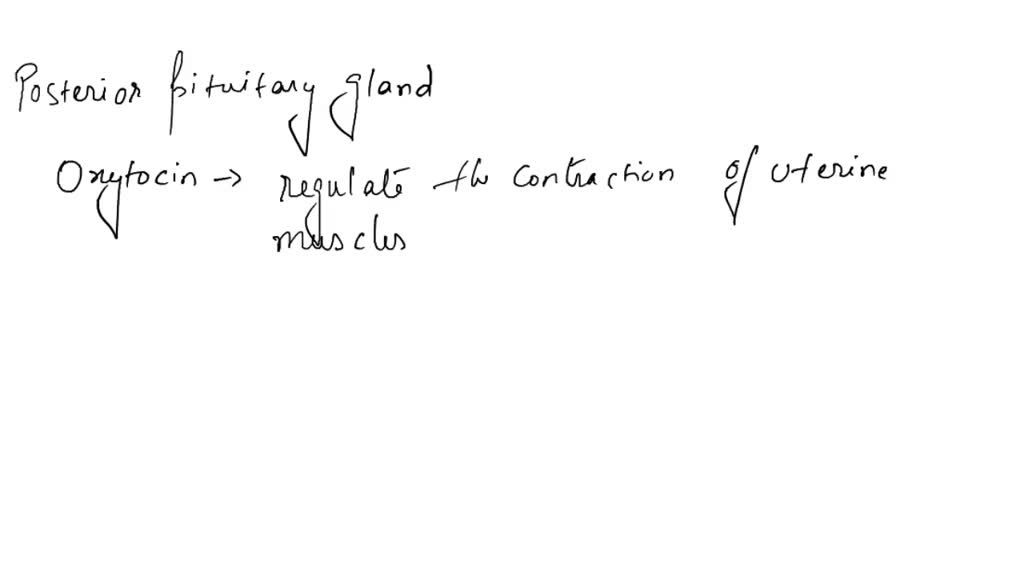 Posterior pituitary gland
Oxytocin → regulate the contraction of uterine
muscles